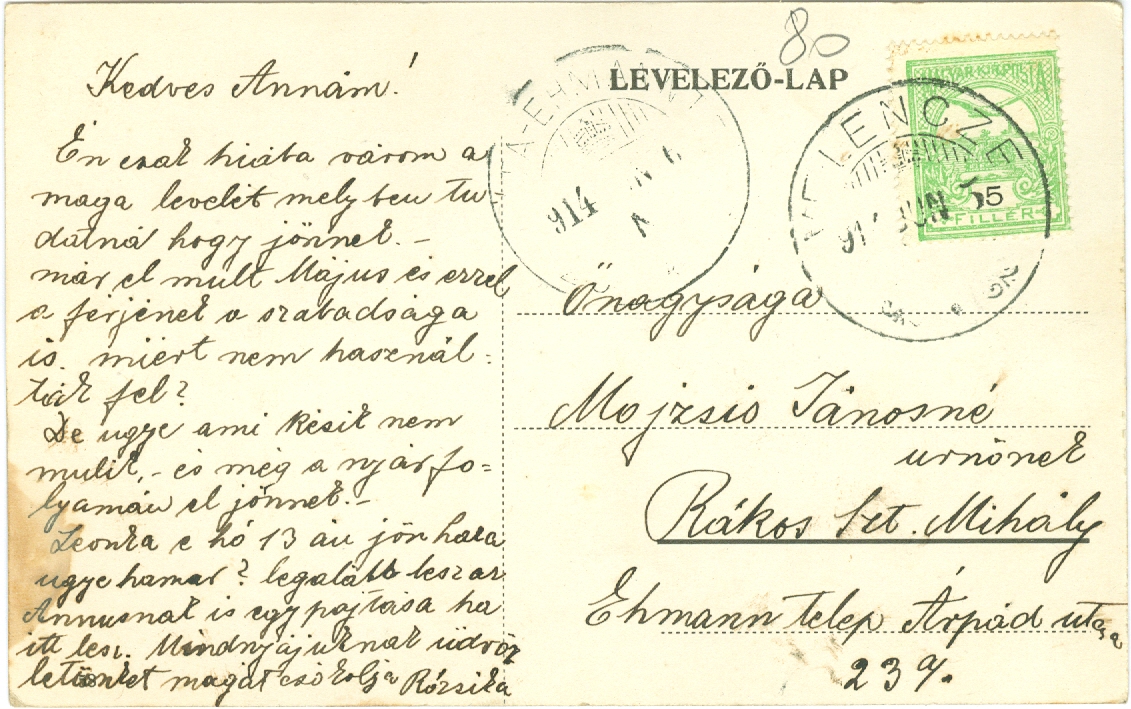 80
LEVELEZŐ-LAP
MAGYAR KIR. POSTA
5
FILLÉR
VELENCZE
914 JUN 5
914
Kedves Annám!
Én csak hiába várom a
maga levelét melyben tu
datná hogy jönnek. –
már el mult Május és ezzel
a férjének a szabadsága
is. miért nem használ=
ták fel?
De ugye ami késik nem
mulik, – és még a nyár fo=
lyamán el jönnek. –
Leonka e hó 13 án jön haza
ugye hamar? legalább lesz az
Annusnak is egy pajtása ha
itt lesz. Mindnyájuknak üdvöz
letünket magát csókolja Rózsika
Őnagysága
Mojzsio Jánosné
urnőnek
Rákos Szt. Mihály
Ehmann telep Árpád utcza
23 a/.